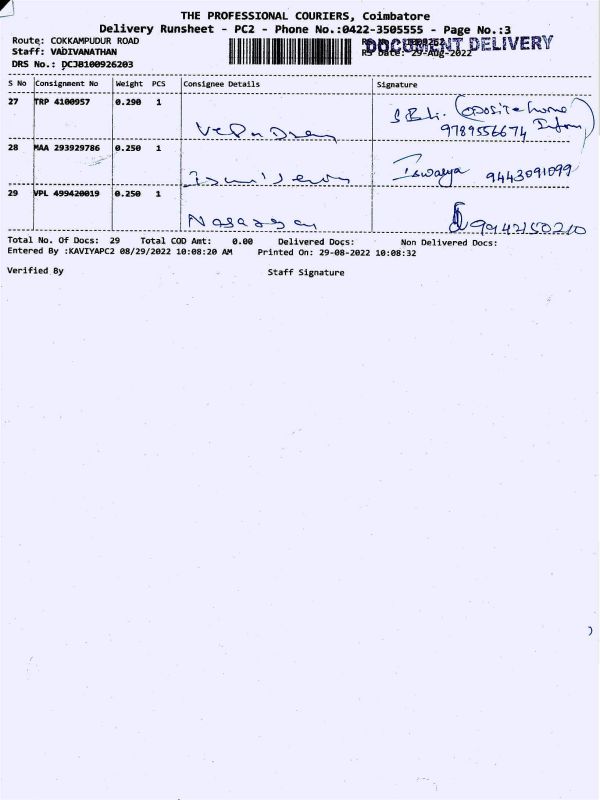 THE PROFESSIONAL COURIERS, Coimbatore
Delivery Runsheet - PC2 - Phone No.:0422-3505555 - Page No.:3
Route: COKKAMPUDUR ROAD
DOCUMENT DELIVERY
Staff: VADIVANATHAN
RS Date: 29-Aug-2022
DRS No.: DCJB100926203
S No Consignment No Weight PCS Consignee Details Signature
27 TRP 4100957 0.290 1
9789556674
28 MAA 293929786 0.250 1
Iswarya 9443091099
29 VPL 499420019 0.250 1
9942150210
Total No. Of Docs: 29 Total COD Amt: 0.00 Delivered Docs: Non Delivered Docs:
Entered By :KAVIYAPC2 08/29/2022 10:08:20 AM Printed On: 29-08-2022 10:08:32
Verified By Staff Signature